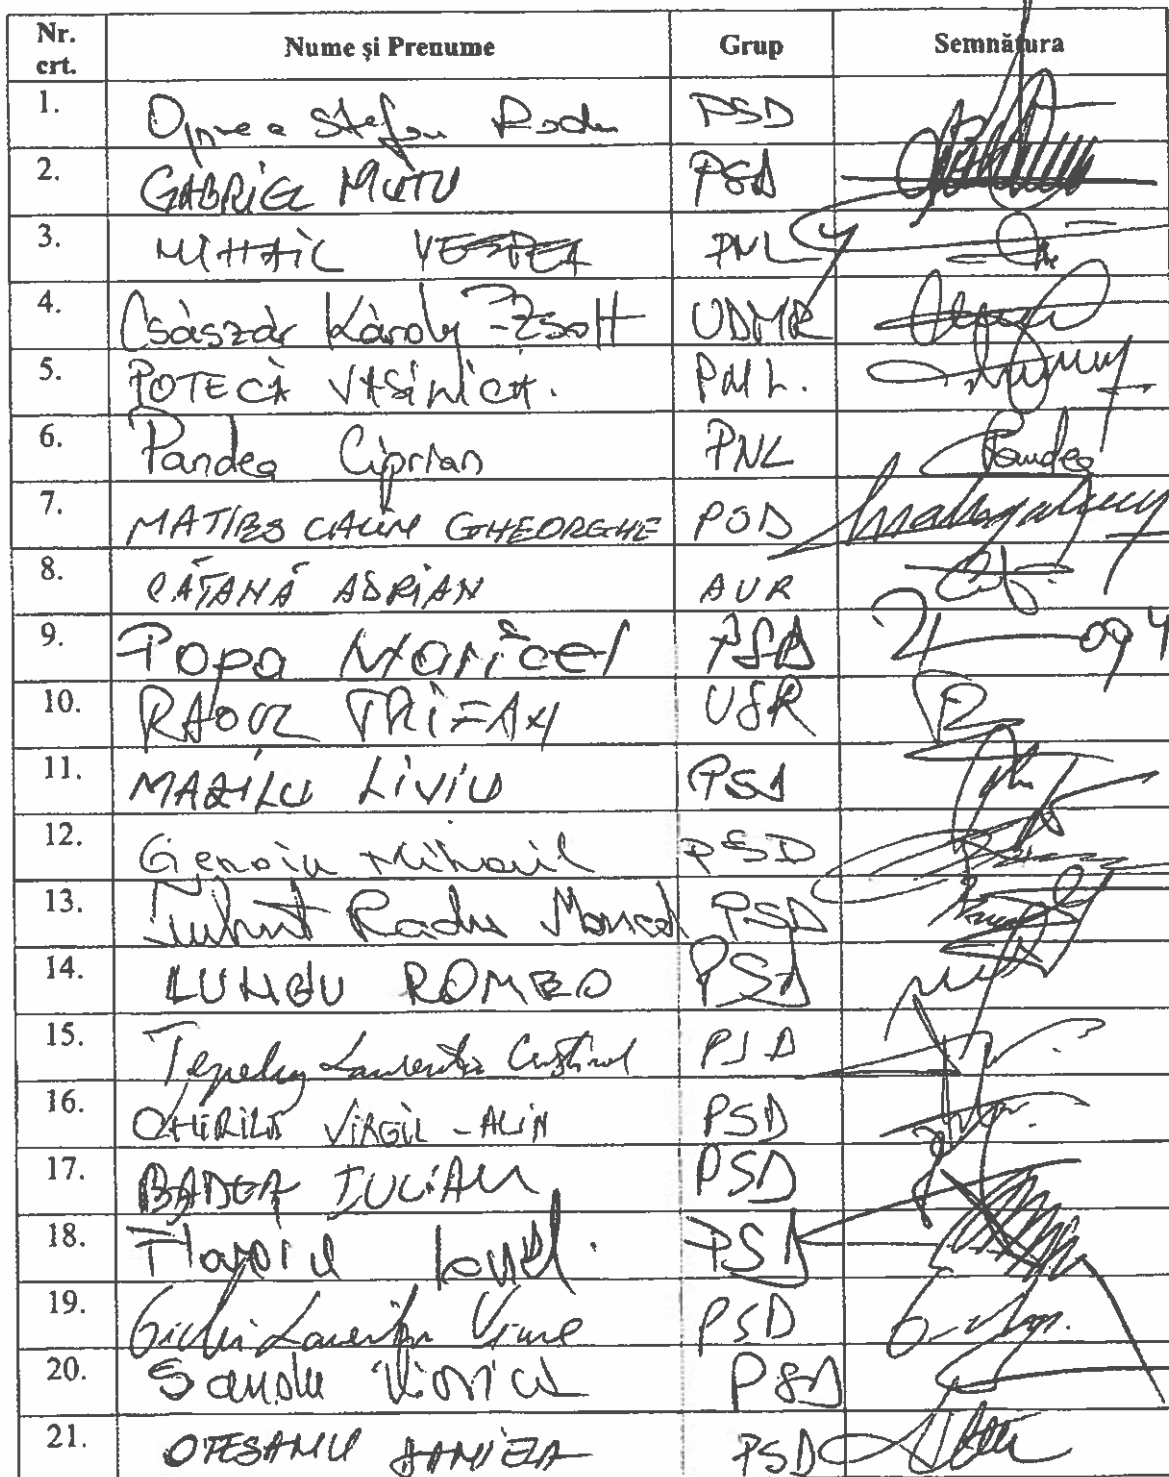 Nr. crt. Nume și Prenume Grup Semnătura
1. Oprea Stefan Radu PSD
2. GABRIEL MUTU PSD
3. MIHAIL VESTEA PNL
4. Császár Károly-Zsolt UDMR
5. POTECĂ VASILICĂ. PNL.
6. Pandea Ciprian PNL Pandea
7. MATIEȘ CALIN GHEORGHE PSD
8. CĂTANĂ ADRIAN AUR
9. Popa Maricel PSD
10. RAOUL TRIFAN USR
11. MAZILU LIVIU PSD
12. Genoiu Mihail PSD
13. Radu Marcel PSD
14. LUNGU ROMEO PSD
15. Laurentiu Cristinel PSD
16. CHIRILĂ VIRGIL-ALIN PSD
17. BADEA IULIAN PSD
18. Floroiu Ionel. PSD
19. Laurentiu Viorel PSD
20. Sandu Viorica PSD
21. OTESANU DANIELA PSD